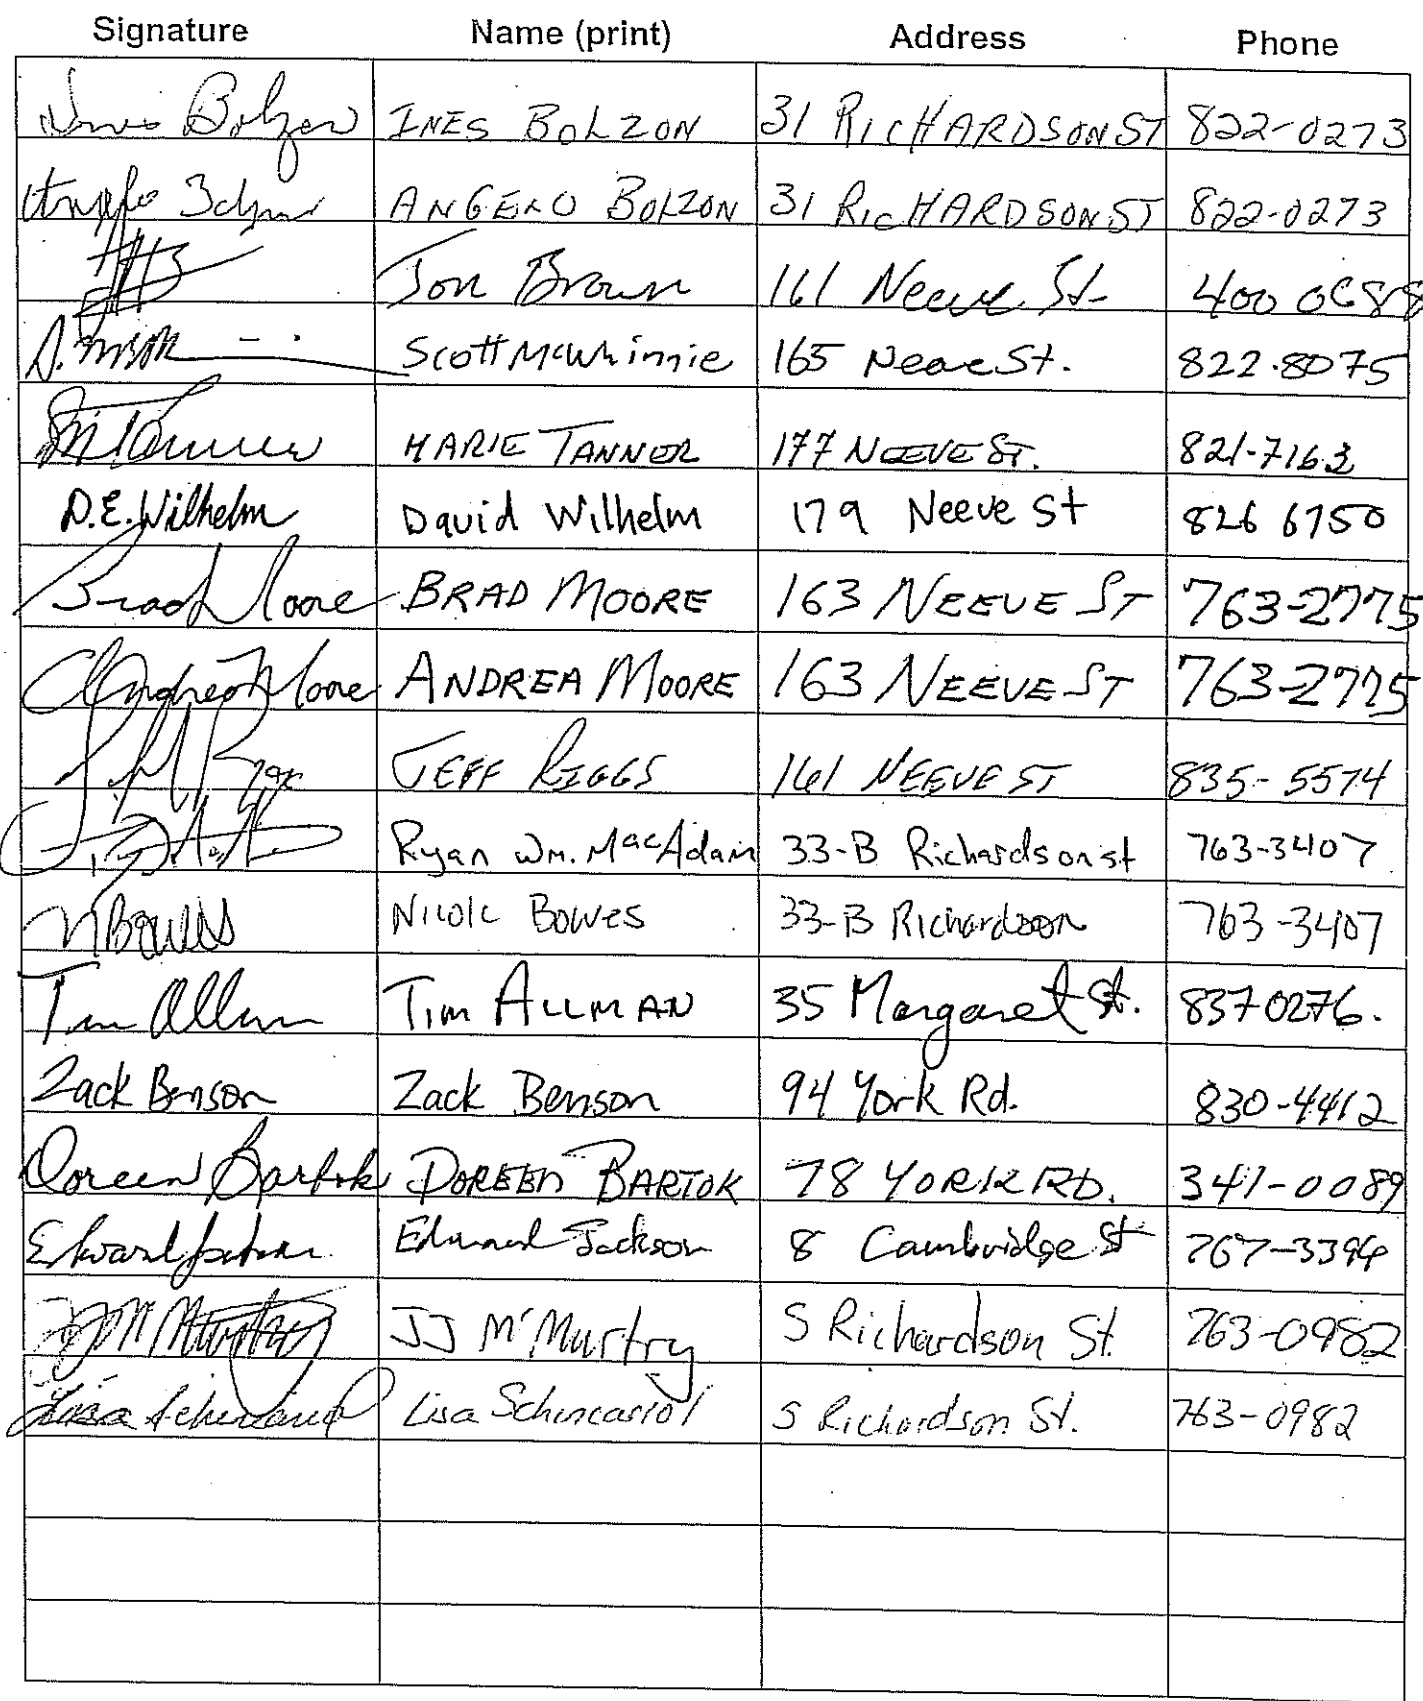 Signature Name (print) Address Phone
Ines Bolzon INES BOLZON 31 RICHARDSON ST 822-0273
ANGELO BOLZON 31 RICHARDSON ST 822-0273
Jon Brown 161 Neeve St. 400 0688
Scott McWhinnie 165 Neeve St. 822.8075
MTanner MARIE TANNER 177 NEEVE ST. 821-7163
D.E. Wilhelm David Wilhelm 179 Neeve St 826 6750
Brad Moore BRAD MOORE 163 NEEVE ST 763-2775
Andrea Moore ANDREA MOORE 163 NEEVE ST 763-2775
JEFF RIGGS 161 NEEVE ST 835-5574
Ryan Wm. MacAdam 33-B Richardson st 763-3407
NBowes Nicole Bowes 33-B Richardson 763-3407
Tim Allman TIM ALLMAN 35 Margaret St. 837 0276.
Zack Benson Zack Benson 94 York Rd. 830-4412
Doreen Bartok DOREEN BARTOK 78 YORK RD. 341-0089
Edward Jackson Edward Jackson 8 Cambridge St 767-3394
JJ McMurtry JJ McMurtry 5 Richardson St. 763-0982
Lisa Schincariol Lisa Schincariol 5 Richardson St. 763-0982